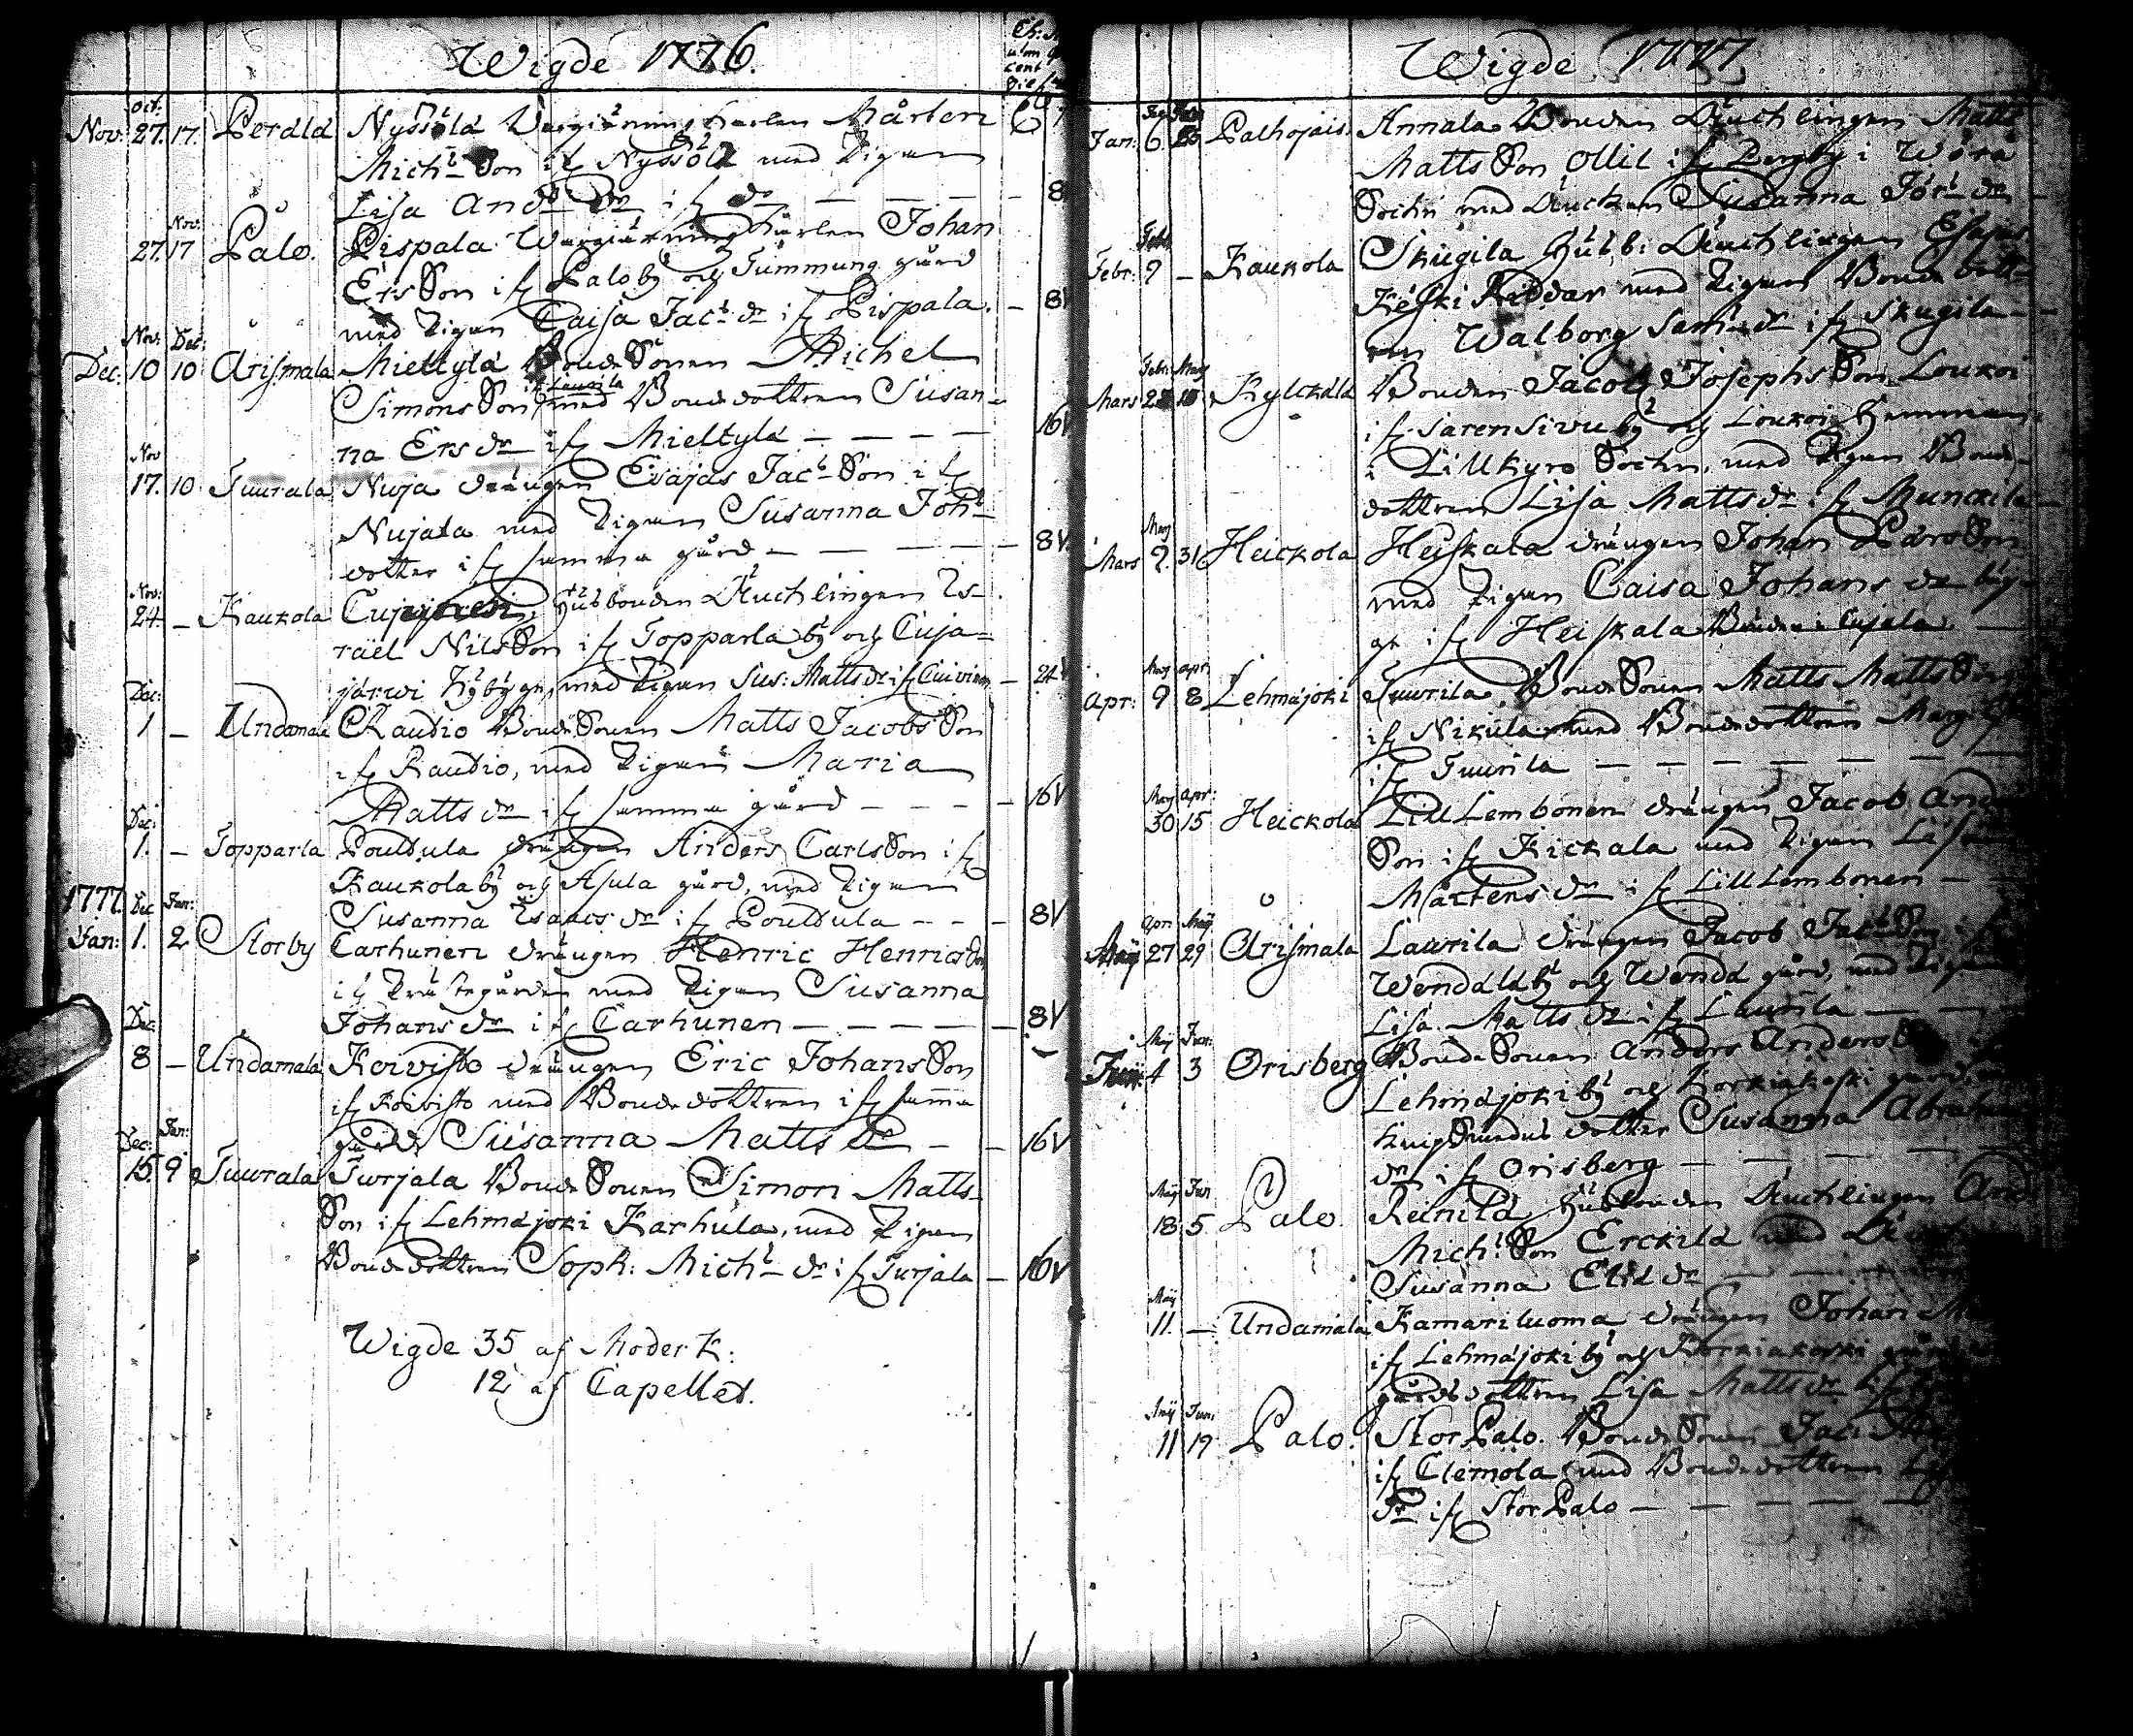 Wigde 1776.
Oct:
Nov: 27. 17. Perälä Nyssölä Wargiärning Karlen Mårten
Mich:s Son if Nyssölä med Pigan
Lisa And:s dr if do — — — 8
Nov:
27. 17 Palo. Pispala Wargiärning Karlen Johan
Ers Son if Palo by och Tummung gård
med Pigan Caisa Jac:s dr if Pispala. — 8V
Nov: Dec:
Dec: 10 10 Orismala Mieltylä Bonde Sonen Michel
if Laurila
Simons Son med Bondedottren Susan-
na Ers dr if Mieltylä — — — — 16V
Nov
17. 10 Tuurala Nuja drängen Esajas Jac:s Son if
Nujala med Pigan Susanna Joh:s
dotter if samma gård — — — — 8V
Nov:
24. — Kaukola Husbonden Änchlingen Is-
raël Nils Son if Topparla by och Cuja-
järwi Nybygge, med Pigan Sus: Matts dr if — 24V
Dec:
1 — Undamala Raudio Bonde Sonen Matts Jacobs Son
if Raudio, med Pigan Maria
Matts dr if samma gård — — — — 16V
Dec:
1. — Topparla Poultula drängen Anders Carls Son if
Kaukola by och Asula gård, med Pigan
Susanna Isaacs dr if Poultula — — — 8V
1777. Dec Jan:
Jan: 1. 2 Storby Carhunen drängen Henric Henrics Son
if Prästegården med Pigan Susanna
Johans dr if Carhunen — — — — — 8V
Dec:
8 — Undamala Koivisto drängen Eric Johans Son
if Koivisto med Bondedottren if samma
gård Susanna Matts dr — — 16V
Dec: Jan:
15. 9 Tuurala Turjala Bonde Sonen Simon Matts
Son if Lehmäjoki Karhula, med Pigan
Bondedottren Soph: Mich:s dr if Turjala — 16V
Wigde 35 af Moder K:
12 af Capellet.
Wigde 1777
Jan: 6. Palhojais. Annala Bonden Änchlingen Matts
Matts Son Ollil if Bergby i Wörå
Sochn med Änckan Susanna Jör:s dr
Febr:
Febr: 9 — Kaukola Skugila Husb: Änchlingen Esajas
Keski Riddar med Pigan Bondedott-
ren Walborg Sem:s dr if Skugila —
Febr: Marj
Mars Kylckälä Bonden Jacob Josephs Son Loukoi
if Sarensivu by och Loukoi Hemman
i Lillkyro Sochn, med Pigan Bonde-
dottren Lisa Matts dr if Munckila —
Marj
Mars 9. 31 Heickola Heiskala drängen Johan Pärs Son
med Pigan Caisa Johans dr bäg-
ge if Heiskala —
Marj apr:
Apr: 9 8 Lehmäjoki Tuurila Bonde Sonen Matts Matts Son
if Nikula med Bondedottren Marg:
if Tuurila — — — — — —
Marj apr:
30 15 Heickola Lill Lembonen drängen Jacob And
Son if Kickala med Pigan Lisa
Mårtens dr if Lill Lembonen — —
Apr: Maij
Maij 27 29 Orismala Laurila drängen Jacob Jac:s Son if
Wendälä by och Wendä gård, med Pigan
Lisa Matts dr if Laurila — —
Maij Jun:
Jun: 4 3 Orisberg Bonde Sonen Anders Anders
Lehmäjoki by och Korkiakoski gård,
Knipsmedens dotter Susanna Abrahams
dr if Orisberg — — — —
Maij Jun
18 5. Palo Reinilä Husbonden Änchlingen And
Mich:s Son Erckilä med
Susanna Eliæ dr —
Maij
11. — Undamala Kamariluoma drängen Johan M
if Lehmäjoki by och Korkiakoski gård
gårdsdottren Lisa Matts dr if
Maij Jun:
11 19 Palo. Stor Palo. Bonde Sonen Jac:
if Clemola med Bondedottren
dr if Stor Palo — — — —